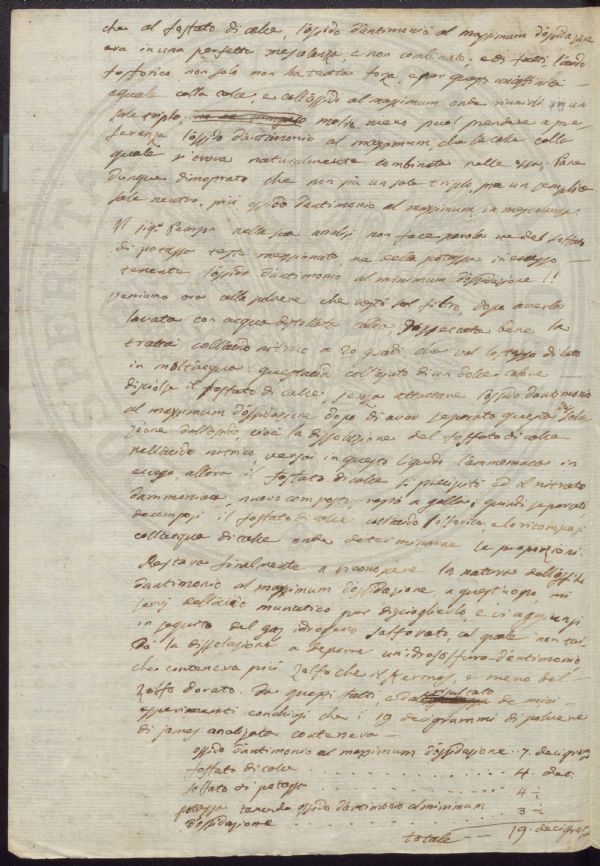 che al fosfato di calce, l'ossido d'antimonio al maximum d'ossidazione
era in una perfetta mescolanza, e non combinato; e di fatti l'acido
fosforico, non solo non ha tutta forza, e per questo un'affinità
eguale colla calce, e coll'ossido al maximum onde riunirli in un
sale triplo, molto meno puol prendere a pre-
ferenza l'ossido d'antimonio al maximum, che la calce colla
quale si trova naturalmente combinata nelle ossa. Pare
dunque dimostrato che non sia un sale triplo, ma un semplice
sale neutro, più ossido d'antimonio al maximum in mescolanza.
Il sigr. nella sua analisi non fece parola ne del solfato
di potassa testè menzionato, ne della potassa in eccesso
tenente l'ossido d'antimonio al minimum d'ossidazione!!
Veniamo ora alla polvere che restò sul filtro, dopo averla
lavata con acqua distillata calda, disseccata bene la
trattai coll'acido nitrico a 20 gradi, che val lo stesso di lato
in molt'acqua: quest'acido coll'ajuto di un dolce calore
disciolse il fosfato di calce, senza attaccare l'ossido d'antimonio
al maximum d'ossidazione dopo di aver separato questa dissolu-
zione dall'ossido, cioè la dissoluzione del fosfato di calce
nell'acido nitrico versai in questo liquido l'ammoniaca in
eccesso, allora il fosfato di calce si precipitò ed il nitrato
d'ammoniaca nuovo composto, restò a galla; quindi separati
decomposi il fosfato di calce coll'acido solforico, e lo ricomposi
coll'acqua di calce onde determinarne le proporzioni.
Restava finalmente a riconoscere la natura dell'ossido
d'antimonio al maximum d'ossidazione, a quest'uopo mi
servij dell'acido muriatico per discioglierlo, e ci aggiunsi
in seguito del gaz idrogeno solforato, al quale non tar-
dò la dissoluzione a deporre un'idrosolfuro d'antimonio,
che conteneva più zolfo che il Kermes, e meno del
zolfo dorato. Da questi fatti e dal risultato de miei
esperimenti conchiusi che i 19 decigrammi di polvere
di james analizzata conteneva —
ossido d'antimonio al maximum d'ossidazione .. 7. decigrammi
fosfato di calce . . . . . . . . . . 4. deci:
solfato di potassa . . . . . . . . . . 4 ½
potassa tenente ossido d'antimonio al minimum
d'ossidazione . . . . . . . . . . 3 ½
totale —— 19. decigrammi